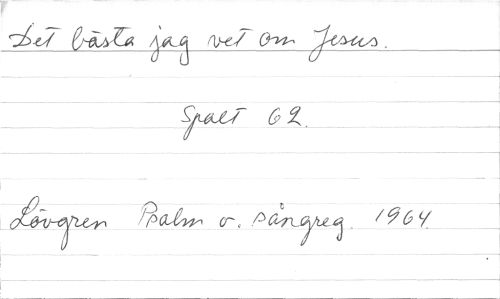 Det bästa jag vet om Jesus.
Spalt 62.
Lövgren Psalm o. sångreg. 1964.